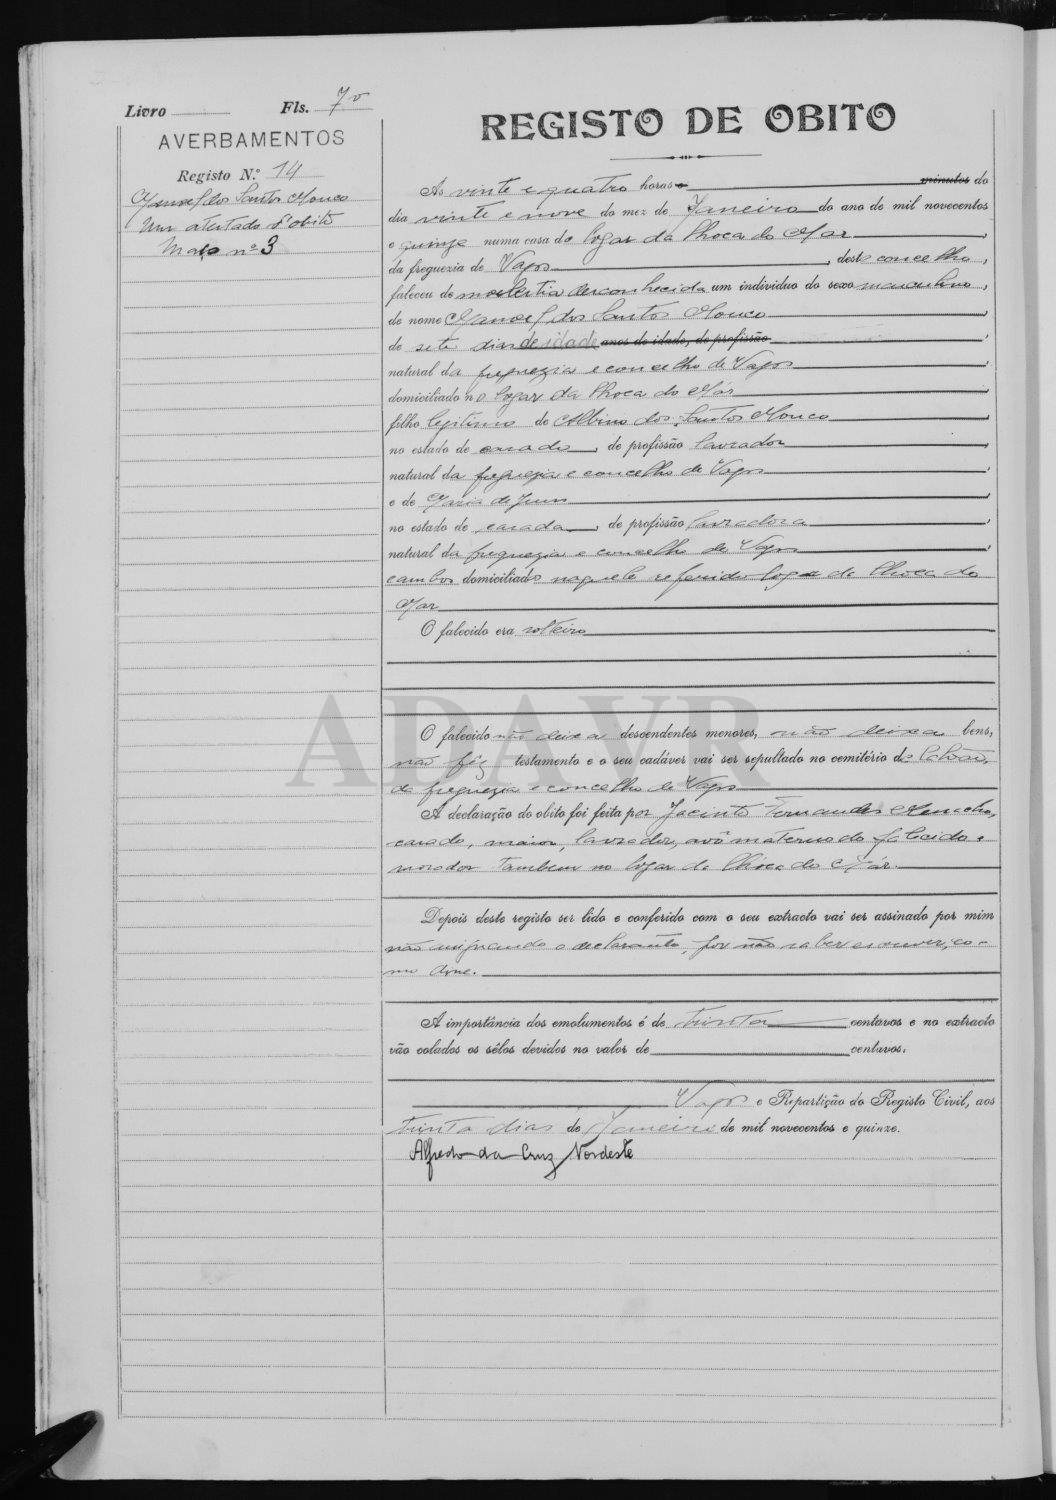 Livro Fls. 7v
AVERBAMENTOS
Registo N.º 14
Manoel dos Santos Mouco
Um atestado d'obito
Maço nº 3
REGISTO DE OBITO
As vinte e quatro horas e minutos do
dia vinte e nove do mez de Janeiro do ano de mil novecentos
e quinze numa casa do logar da Choca do Mar,
da freguezia de Vagos, deste concelho,
faleceu de molestia desconhecida um individuo do sexo masculino,
de nome Manoel dos Santos Mouco,
de sete dias de idade anos de idade, de profissão,
natural da freguezia e concelho de Vagos
domiciliado no logar da Choca do Mar
filho legitimo de Albino dos Santos Mouco,
no estado de casado, de profissão lavrador,
natural da freguezia e concelho de Vagos,
e de Maria de Jesus,
no estado de casada, de profissão lavradora,
natural da freguezia e concelho de Vagos,
e ambos domiciliados naquele referido logar da Choca do
Mar
O falecido era solteiro
ADAVR
O falecido não deixa descendentes menores, não deixa bens,
não fez testamento e o seu cadáver vai ser sepultado no cemitério de
da freguezia e concelho de Vagos
A declaração do obito foi feita por Jacinto Fernandes
casado, maior, lavrador, avô materno do falecido e
morador tambem no logar da Choca do Mar.
Depois deste registo ser lido e conferido com o seu extracto vai ser assinado por mim
não assignando o declarante, por não saber escrever, co-
mo disse.
A importância dos emolumentos é de trinta centavos e no extracto
vão colados os sêlos devidos no valor de centavos.
Vagos e Repartição do Registo Civil, aos
trinta dias de Janeiro de mil novecentos e quinze.
Alfredo da Cruz Nordeste